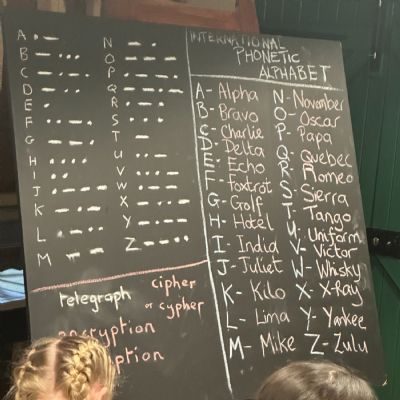 A • –
B – • • •
C – • – •
D – • •
E •
F • • – •
G – – •
H • • • •
I • •
J • – – –
K – • –
L • – • •
M – –
N – •
O – – –
P • – – •
Q – – • –
R • – •
S • • •
T –
U • • –
V • • • –
W • – –
X – • • –
Y – • – –
Z – – • •
INTERNATIONAL
PHONETIC
ALPHABET
A - Alpha
B - Bravo
C - Charlie
D - Delta
E - Echo
F - Foxtrot
G - Golf
H - Hotel
I - India
J - Juliet
K - Kilo
L - Lima
M - Mike
N - November
O - Oscar
P - Papa
Q - Quebec
R - Romeo
S - Sierra
T - Tango
U - Uniform
V - Victor
W - Whisky
X - X-Ray
Y - Yankee
Z - Zulu
telegraph
cipher
or cypher
encryption